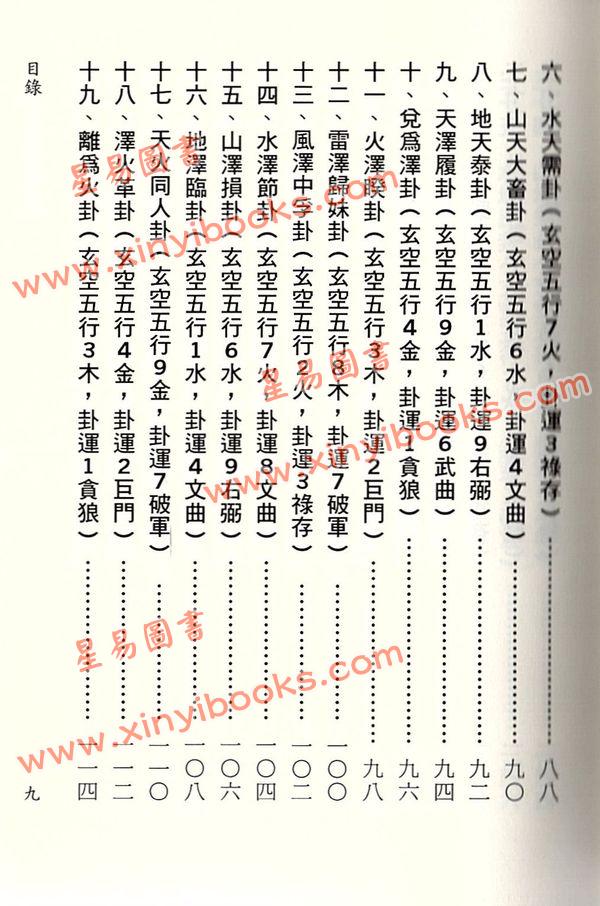 六、水天需卦(玄空五行7火,卦運3祿存)……八八
七、山天大畜卦(玄空五行6水,卦運4文曲)……九〇
八、地天泰卦(玄空五行1水,卦運9右弼)……九二
九、天澤履卦(玄空五行9金,卦運6武曲)……九四
十、兌爲澤卦(玄空五行4金,卦運1貪狼)……九六
十一、火澤睽卦(玄空五行3木,卦運2巨門)……九八
十二、雷澤歸妹卦(玄空五行8木,卦運7破軍)……一〇〇
十三、風澤中孚卦(玄空五行2火,卦運3祿存)……一〇二
十四、水澤節卦(玄空五行7火,卦運8文曲)……一〇四
十五、山澤損卦(玄空五行6水,卦運9右弼)……一〇六
十六、地澤臨卦(玄空五行1水,卦運4文曲)……一〇八
十七、天火同人卦(玄空五行9金,卦運7破軍)……一一〇
十八、澤火革卦(玄空五行4金,卦運2巨門)……一一二
十九、離爲火卦(玄空五行3木,卦運1貪狼)……一一四
目錄
九
星易圖書
www.xinyibooks.com
星易圖書
www.xinyibooks.com
星易圖書
www.xinyibooks.com